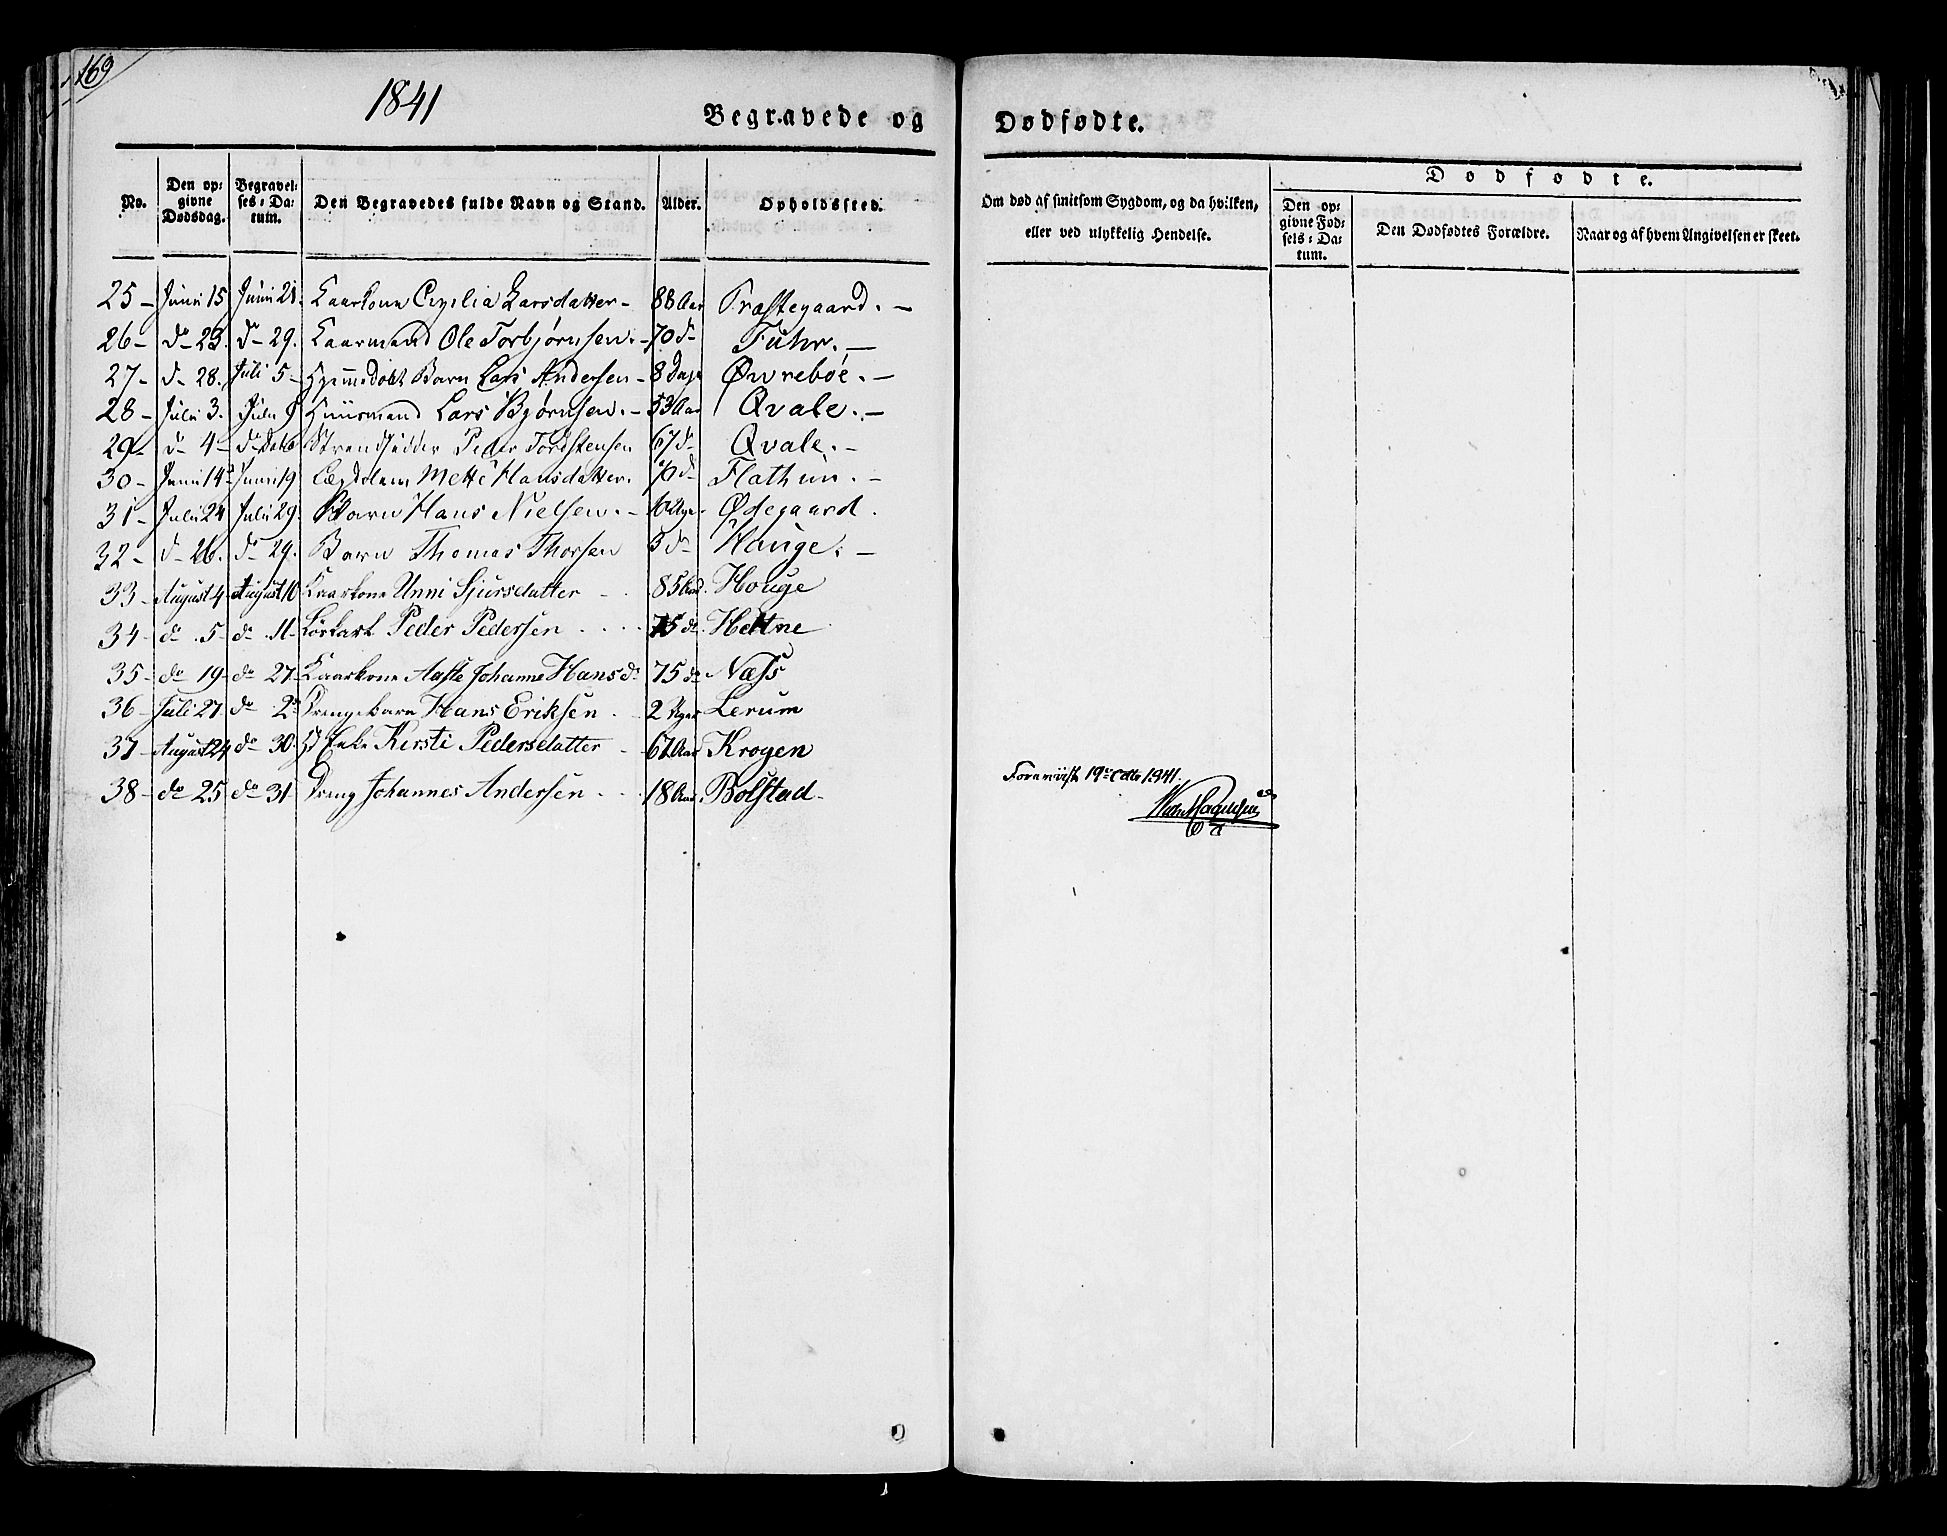 169
1841
Begravede og Dødfødte.
No. Den opgivne Dødsdag. Begravelses-Datum. Den Begravedes fulde Navn og Stand. Alder. Opholdssted. Om død af smitsom Sygdom, og da hvilken, eller ved ulykkelig Hendelse. Dødfødte.
Den opgivne Fødsels-Datum. Den Dødfødtes Forældre. Naar og af hvem Angivelsen er skeet.
25 – Juni 15 Juni 21. Kaarkone Cecilia Larsdatter – 88 Aar Præstegaard. –
26 – do 23. do 29. Kaarmand Ole Torbjørnsen. – 70 do Fuhr. –
27 – do 28. Juli 5 – Hjemmedøbt Barn Lars Andersen – 8 Dage Øvrebøe. –
28 – Juli 3. Juli 9 Huusmand Lars Bjørnsen. – 53 Aar Qvale. –
29 – do 4 – do Strandsidder Peder Tordstensen 67 do Qvale. –
30 – Juni 14 Juni 19 Mette Hansdatter. 70 do Flathun. –
31 – Juli 24 Juli 29. Barn Hans Nielsen. – 6 Uger Ødegaard.
32 – do 26. do 29. Barn Thomas Thorsen 3 do Hauge. –
33 – August 4 – August 10 Kaarkone Unni Sjursdatter – 85 Aar. Houge
34 – do 5 – do 11 – Løskarl Peder Pedersen 75 do. Hettne
35 – do 19 – do 27 – Kaarkone Aaste Johanne Hansdr 75 do Næss
36 – Juli 27 do 2 Drengebarn Hans Eriksen 2 Uger Lerum
37 – August 24 do 30. Enke Kirsti Pedersdatter – 61 Aar Krogen
38 – do 25 do 31 Dreng Johannes Andersen 18 Aar. Bolstad –
Foreviist 19de Octbr 1841.